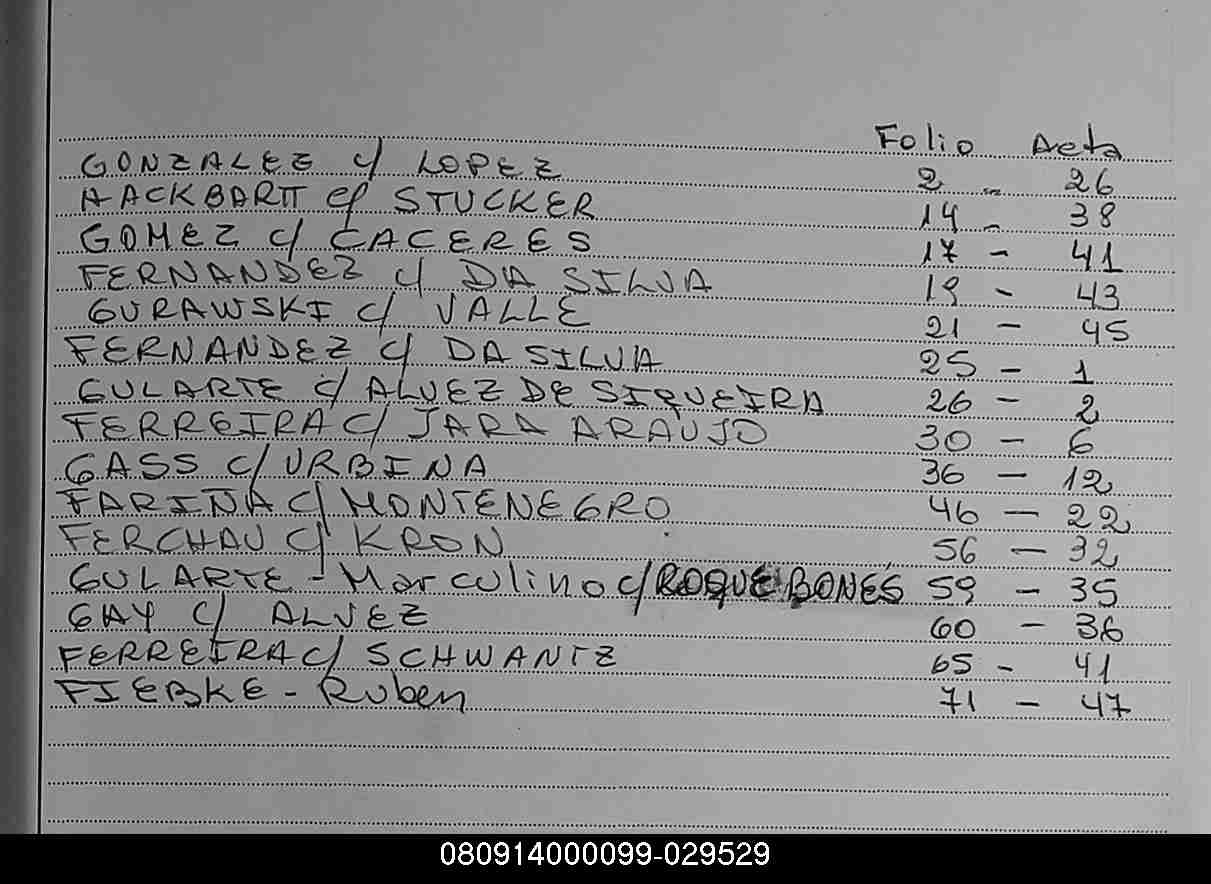 Folio Acta
GONZALEZ c/ LOPEZ 2 - 26
HACKBARTT c/ STUCKER 14 - 38
GOMEZ c/ CACERES 17 - 41
FERNANDEZ c/ DA SILVA 19 - 43
GURAWSKI c/ VALLE 21 - 45
FERNANDEZ c/ DA SILVA 25 - 1
GULARTE c/ ALVEZ DE SIQUEIRA 26 - 2
FERREIRA c/ JARA ARAUJO 30 - 6
GASS c/ URBINA 36 - 12
FARIÑA c/ MONTENEGRO 46 - 22
FERCHAU c/ KRON 56 - 32
GULARTE - Marculino c/ ROQUE BONES 59 - 35
GAY c/ ALVEZ 60 - 36
FERREIRA c/ SCHWANTZ 65 - 41
FIEBKE - Ruben 71 - 47
080914000099-029529